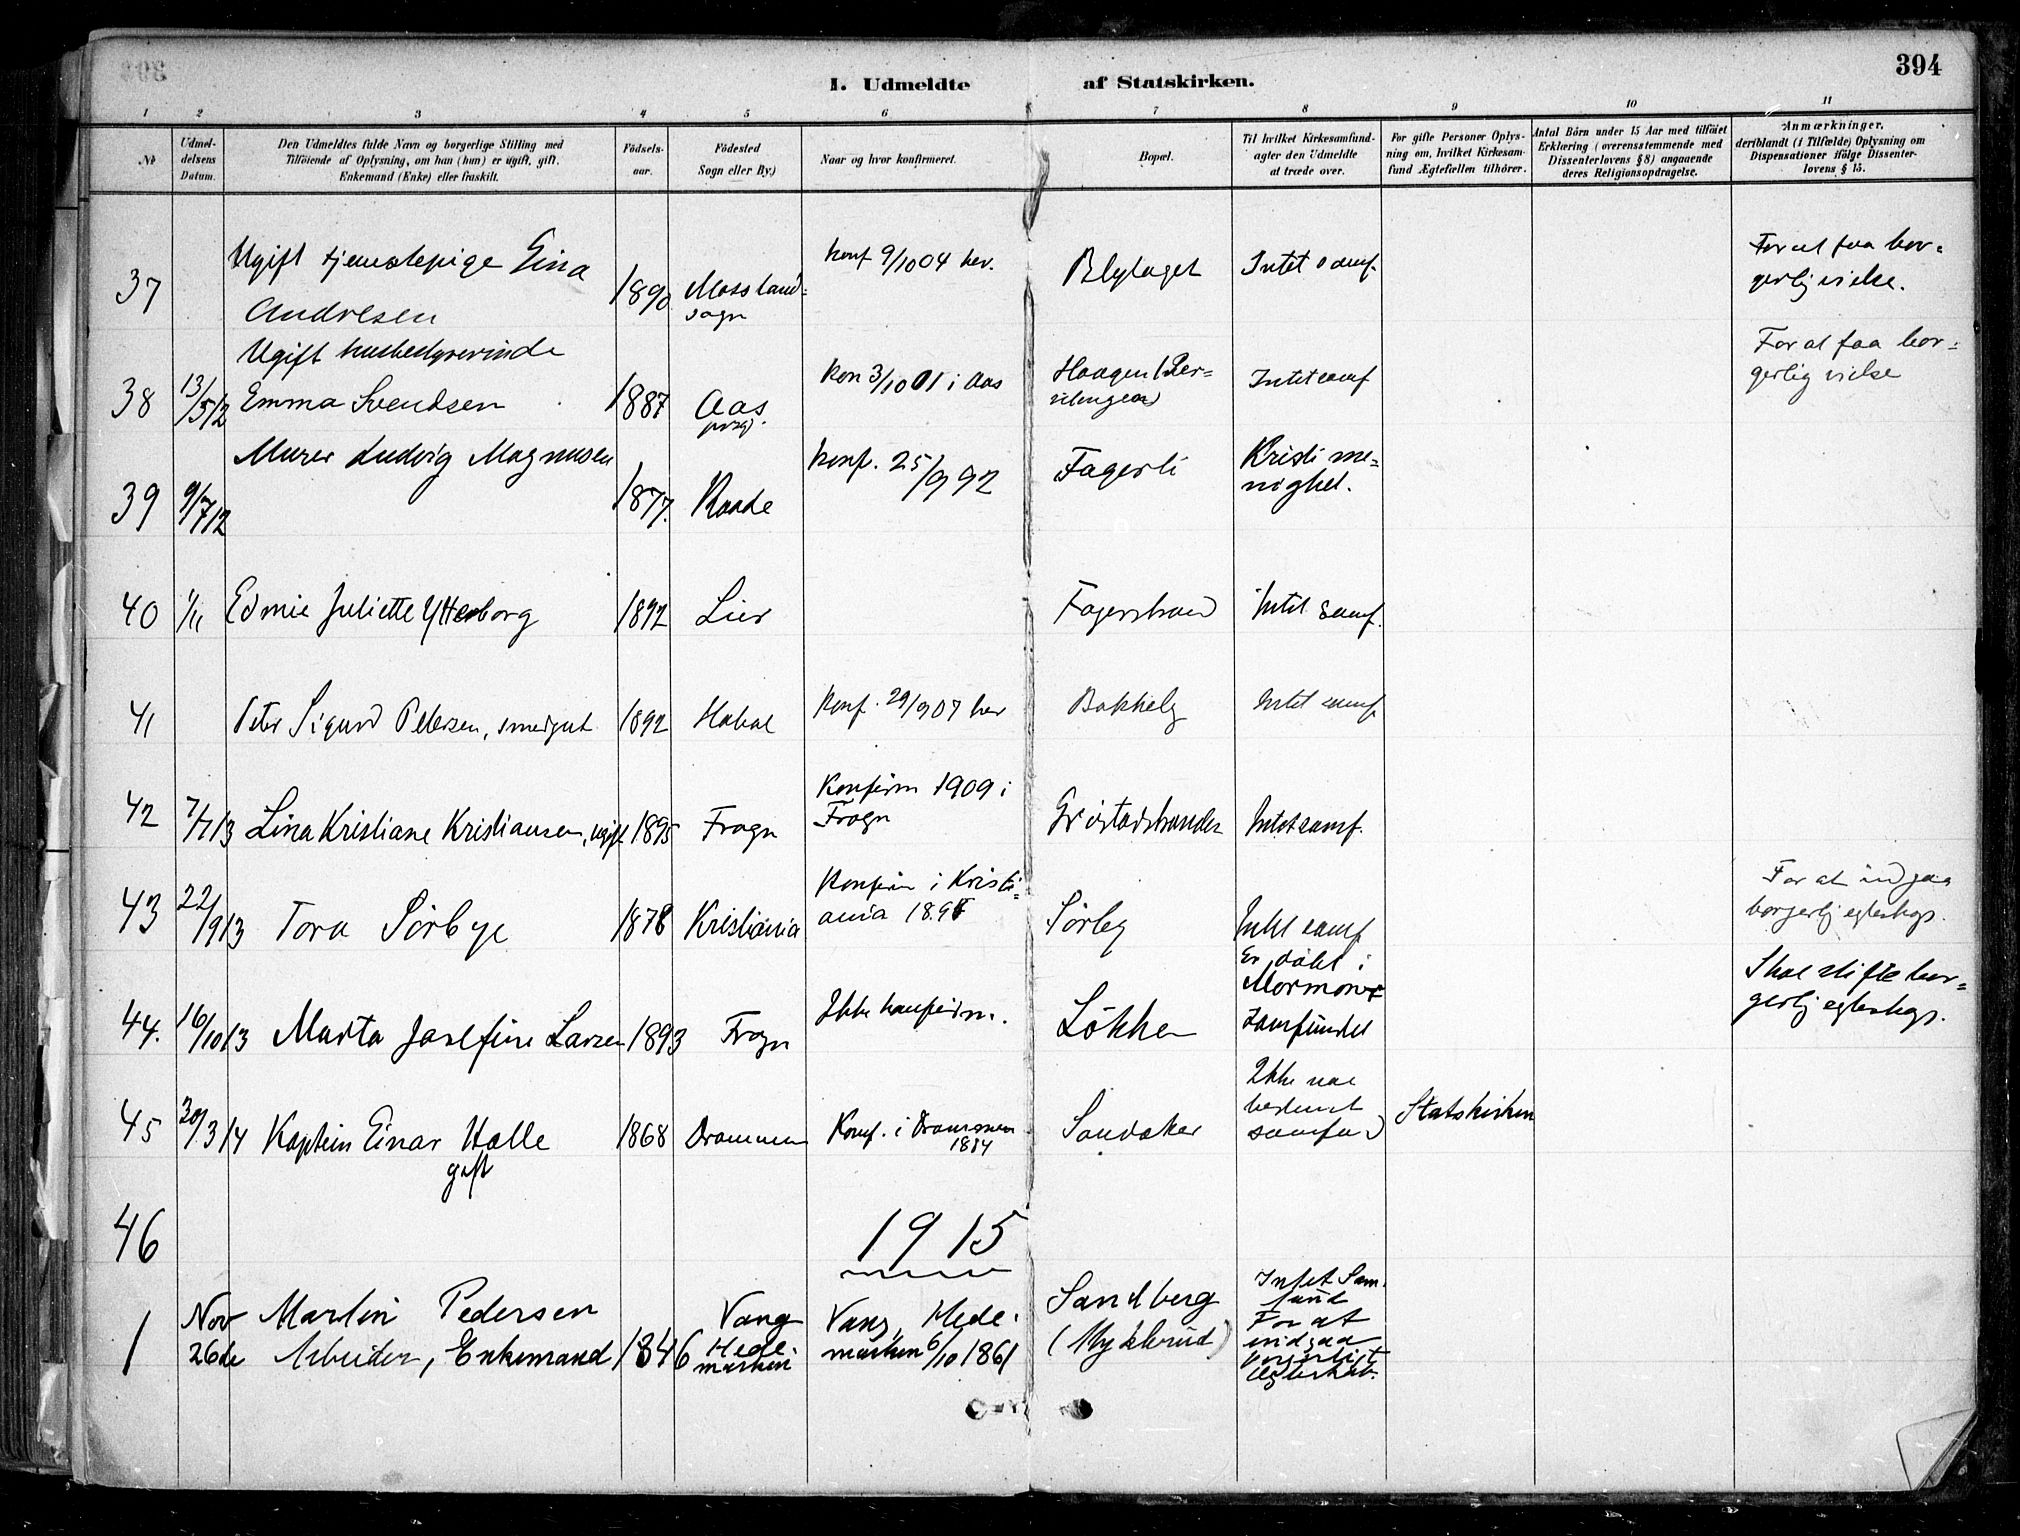 394
I. Udmeldte af Statskirken.
1 2 3 4 5 6 7 8 9 10 11
No
Udmel-
delsens
Datum.
Den Udmeldtes fulde Navn og borgerlige Stilling med
Tilföiende af Oplysning, om han (hun) er ugift, gift,
Enkemand (Enke) eller fraskilt.
Födsels-
aar.
Födested
Sogn eller By.)
Naar og hvor konfirmeret.
Bopæl.
Til hvilket Kirkesamfund
agter den Udmeldte
at træde over.
For gifte Personer Oplys-
ning om, hvilket Kirkesam-
fund Ægtefællen tilhörer.
Antal Börn under 15 Aar med tilföiet
Erklæring (overensstemmende med
Dissenterlovens § 8) angaaende
deres Religionsopdragelse.
Anmærkninger,
deriblandt (i Tilfælde) Oplysning om
Dispensationer ifölge Dissenter-
lovens § 15.
37
Ugift tjenestepige Eina
Andresen
1890
Moss land-
sogn
konf 9/10 04 her.
Blylaget
Intet samf.
For at faa bor-
gerlig vielse.
38
13/5 12
Ugift husbestyrerinde
Emma Svendsen
1887
Aas
prsgj.
kon 3/10 01 i Aas
Haagen
Intet samf
For at faa bor-
gerlig vielse
39
9/7 12
Murer Ludvig Magnusen
1877.
Raade
konf. 25/9 92
Fagerli
Kristi me-
nighet.
40
1/11
Edmie Juliette Ytterborg
1892
Lier
Fagerstrand
Intet samf.
41
Peter Sigurd Petersen, smedgut
1892
Hobøl
Konf. 29/9 07 her
Bakkely
Intet samf
42
7/7 13
Lina Kristiane Kristiansen, ugift
1895
Frogn
Konfirm 1909 i
Frogn
Grøstadstranden
Intet samf.
43
22/9 13
Tora Sørbye
1878
Kristiania
Konfirm i Kristi-
ania
Sørby
Intet samf
For at indgaa
borgerlig egteskap.
44.
16/10 13
Marta Josefine Larsen
1893
Frogn
Ikke konfirm.
Løkken
Er døbt i
Mormoner
samfundet
Skal stifte bor-
gerlig egteskap.
45
30/3 14
Kaptein Einar Halle
gift
1868
Drammen
Konf. i Drammen
1884
Sandaker
Ikke noe
bestemt
samfund
Statskirken
46
1915
1
Nov
26de
Martin Pedersen
Arbeider, Enkemand
1846
Vang
Hede-
marken
Vang, Hede-
marken 6/10 1861
Sandberg
(Myklerud)
Intet Sam-
fund
For at
indgaa
borgerligt
Ægteskab.